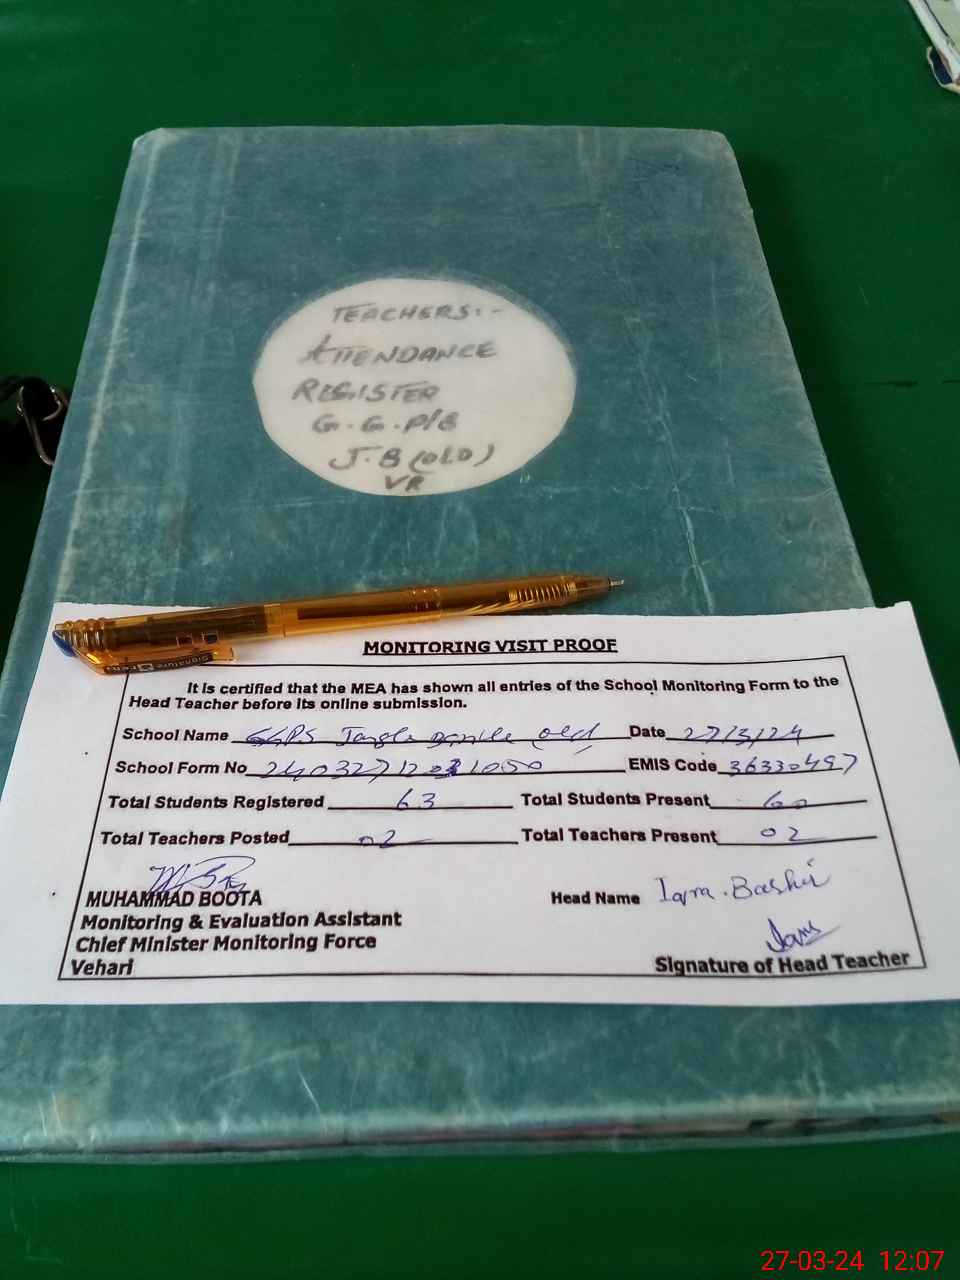 TEACHERS:-
ATTENDANCE
REGISTER
G.G.P/S
J.B (OLD)
VR
Signature
MONITORING VISIT PROOF
It is certified that the MEA has shown all entries of the School Monitoring Form to the
Head Teacher before its online submission.
School Name GGPS old Date 27/3/24
School Form No EMIS Code 36330497
Total Students Registered 63 Total Students Present 60
Total Teachers Posted 02 Total Teachers Present 02
MUHAMMAD BOOTA
Monitoring & Evaluation Assistant
Chief Minister Monitoring Force
Vehari
Head Name Iqra Bashir
Signature of Head Teacher
27-03-24 12:07